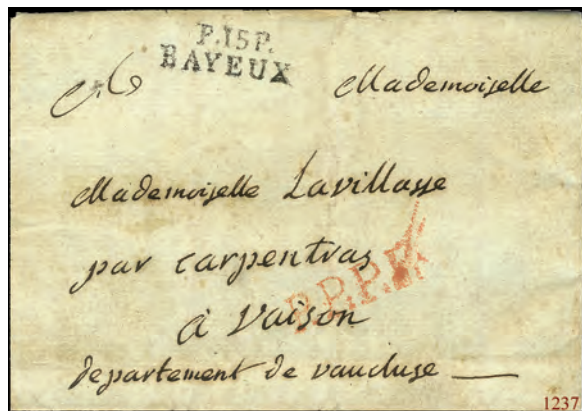 P.15P.
BAYEUX
Mademoiselle
Mademoiselle Lavillasse
par carpentras
P.P.P.P.
à Vaison
departement de vaucluse
1237